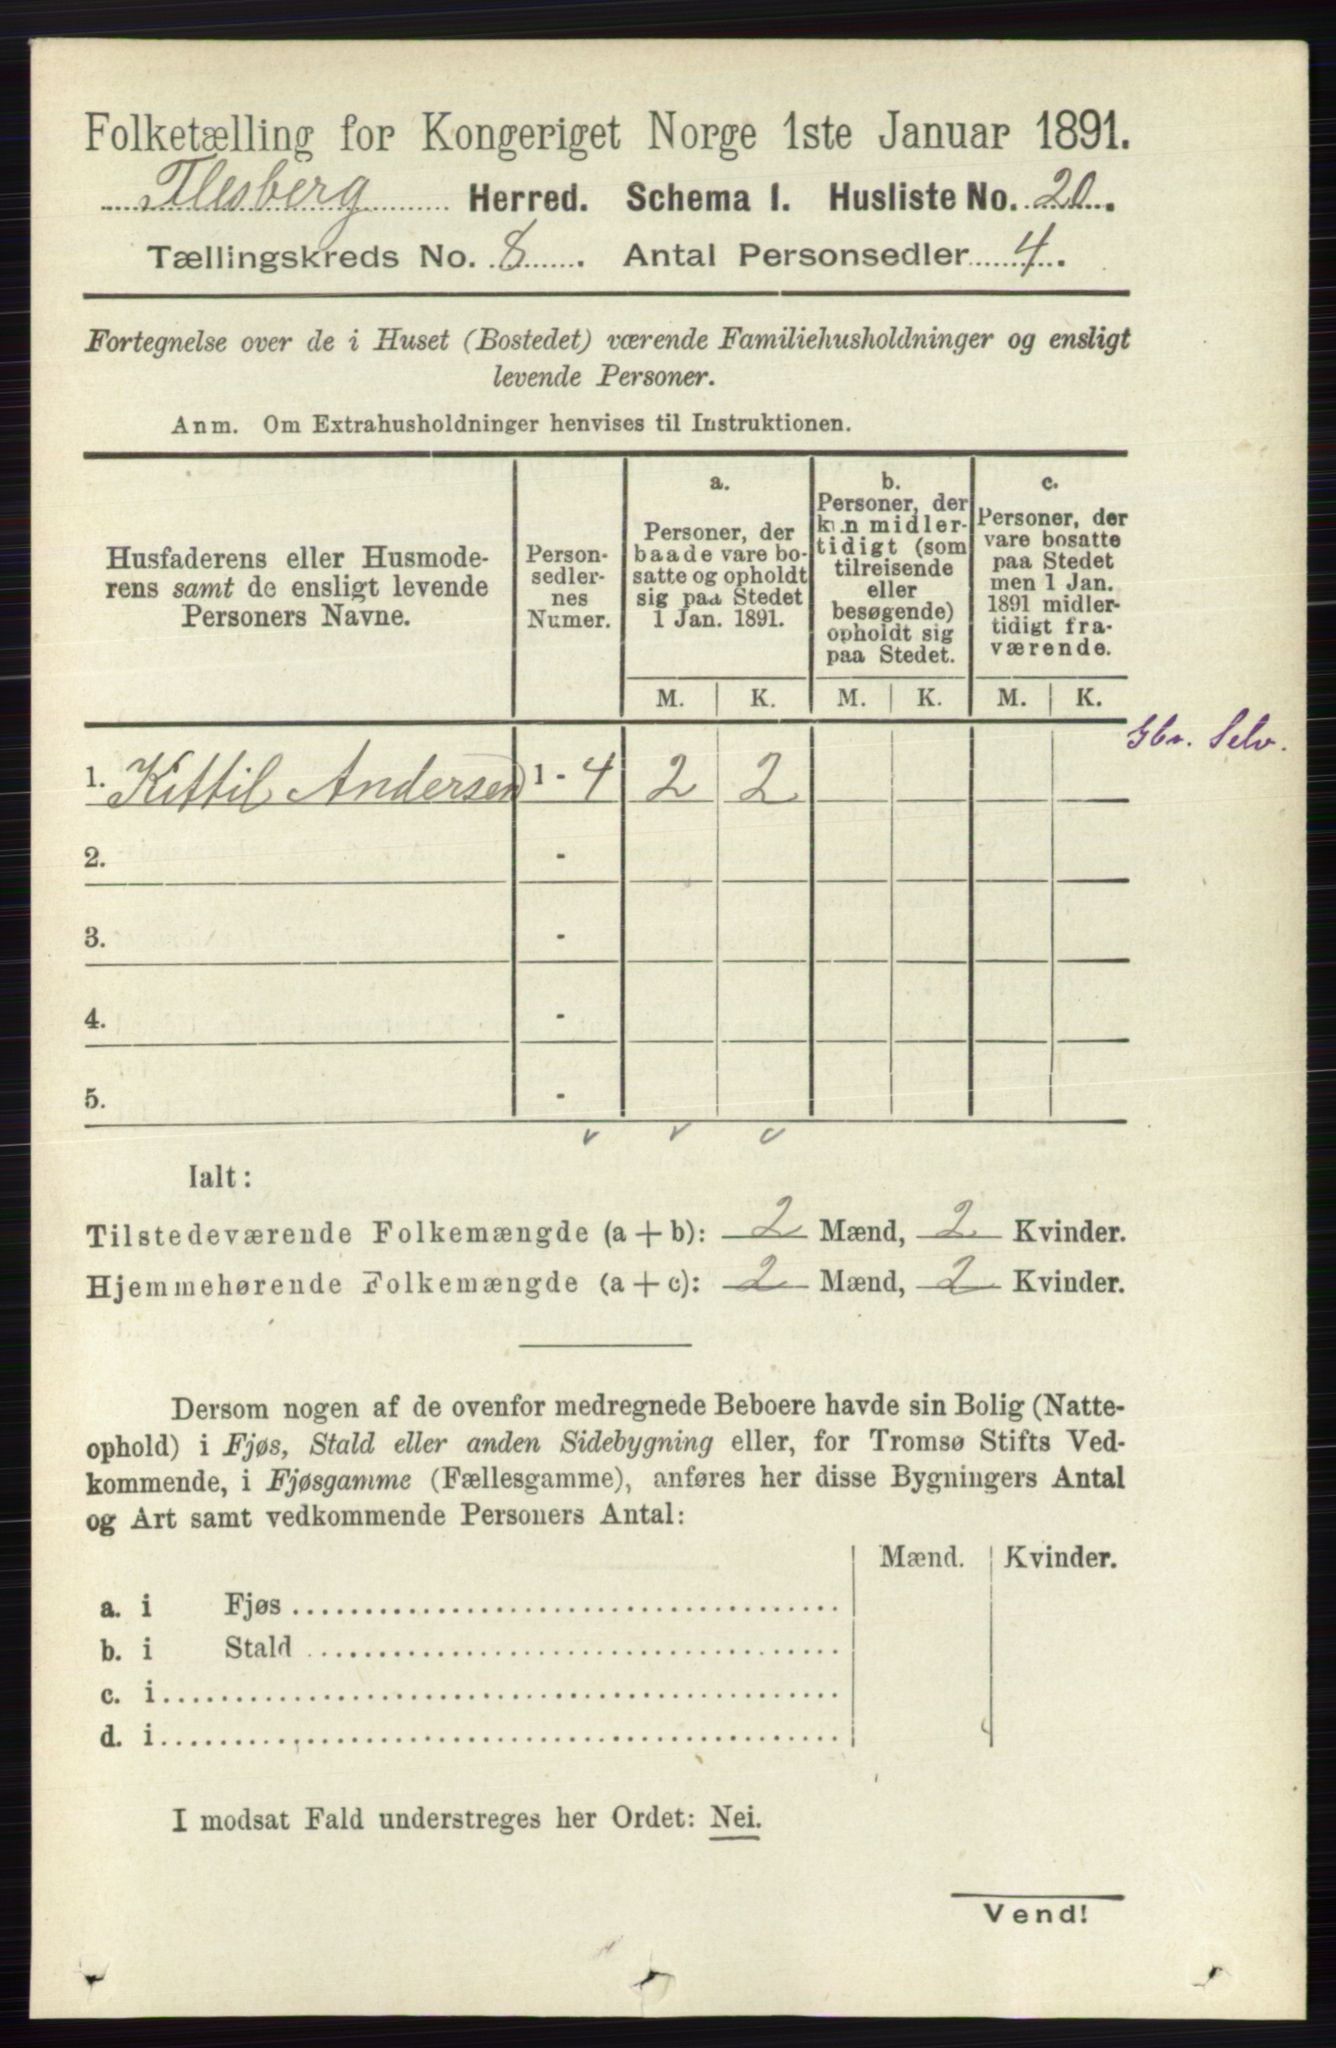 Folketælling for Kongeriget Norge 1ste Januar 1891.
Flesberg Herred. Schema I. Husliste No. 20.
Tællingskreds No. 8. Antal Personsedler 4.
Fortegnelse over de i Huset (Bostedet) værende Familiehusholdninger og ensligt
levende Personer.
Anm. Om Extrahusholdninger henvises til Instruktionen.
Husfaderens eller Husmode-
rens samt de ensligt levende
Personers Navne.
Person-
sedler-
nes
Numer.
a.
Personer, der
baade vare bo-
satte og opholdt
sig paa Stedet
1 Jan. 1891.
b.
Personer, der
kun midler-
tidigt (som
tilreisende
eller
besøgende)
opholdt sig
paa Stedet.
c.
Personer, der
vare bosatte
paa Stedet
men 1 Jan.
1891 midler-
tidigt fra-
værende.
M. K. M. K. M. K.
Gbr. Selv.
1. Kittil Andersen 1 - 4 2 2
2. -
3. -
4. -
5. -
Ialt:
Tilstedeværende Folkemængde (a + b): 2 Mænd, 2 Kvinder.
Hjemmehørende Folkemængde (a + c): 2 Mænd, 2 Kvinder.
Dersom nogen af de ovenfor medregnede Beboere havde sin Bolig (Natte-
ophold) i Fjøs, Stald eller anden Sidebygning eller, for Tromsø Stifts Ved-
kommende, i Fjøsgamme (Fællesgamme), anføres her disse Bygningers Antal
og Art samt vedkommende Personers Antal:
Mænd. Kvinder.
a. i Fjøs
b. i Stald
c. i
d. i
I modsat Fald understreges her Ordet: Nei.
Vend!